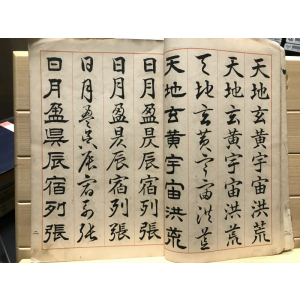 天地玄黃宇宙洪荒
天地玄黃宇宙洪荒
天地玄黃宇宙洪荒
天地玄黃宇宙洪荒
日月盈昃辰宿列張
日月盈昃辰宿列張
日月盈昃辰宿列張
日月盈昃辰宿列張
二